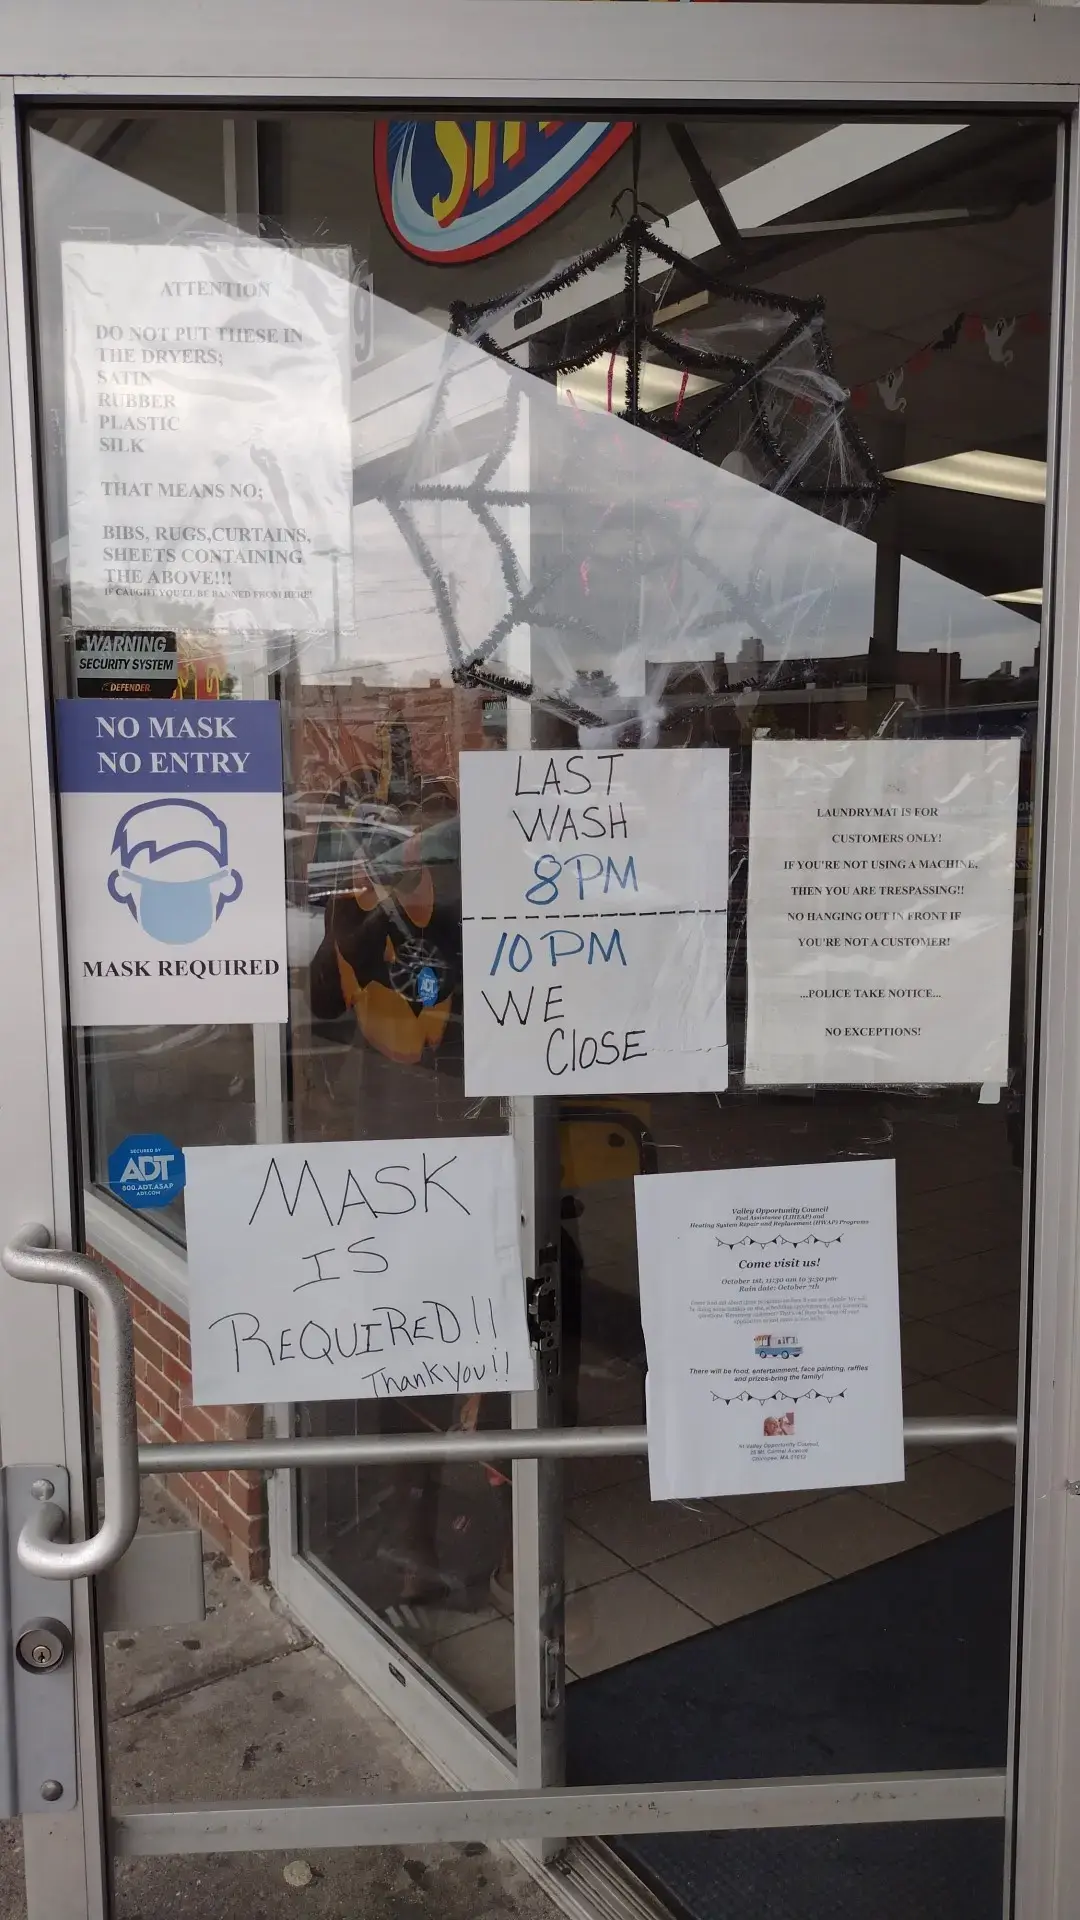 ATTENTION
DO NOT PUT THESE IN
THE DRYERS;
SATIN
RUBBER
PLASTIC
SILK
THAT MEANS NO;
BIBS, RUGS,CURTAINS,
SHEETS CONTAINING
THE ABOVE!!!
IF CAUGHT YOU'LL BE BANNED FROM HERE!
WARNING
SECURITY SYSTEM
DEFENDER
NO MASK
NO ENTRY
MASK REQUIRED
LAST
WASH
8PM
10PM
WE
CLOSE
LAUNDRYMAT IS FOR
CUSTOMERS ONLY!
IF YOU'RE NOT USING A MACHINE,
THEN YOU ARE TRESPASSING!!
NO HANGING OUT IN FRONT IF
YOU'RE NOT A CUSTOMER!
...POLICE TAKE NOTICE...
NO EXCEPTIONS!
ADT
SECURED BY
ADT
800.ADT.ASAP
ADT.COM
MASK
IS
REQUIRED!!
Thank you!!
Valley Opportunity Council
Fuel Assistance (LIHEAP) and
Heating System Repair and Replacement (HWAP) Programs
Come visit us!
October 1st, 11:30 am to 3:30 pm
Rain date: October 7th
There will be food, entertainment, face painting, raffles
and prizes-bring the family!
Valley Opportunity Council
Mt. Carmel Avenue
Chicopee, MA 01013